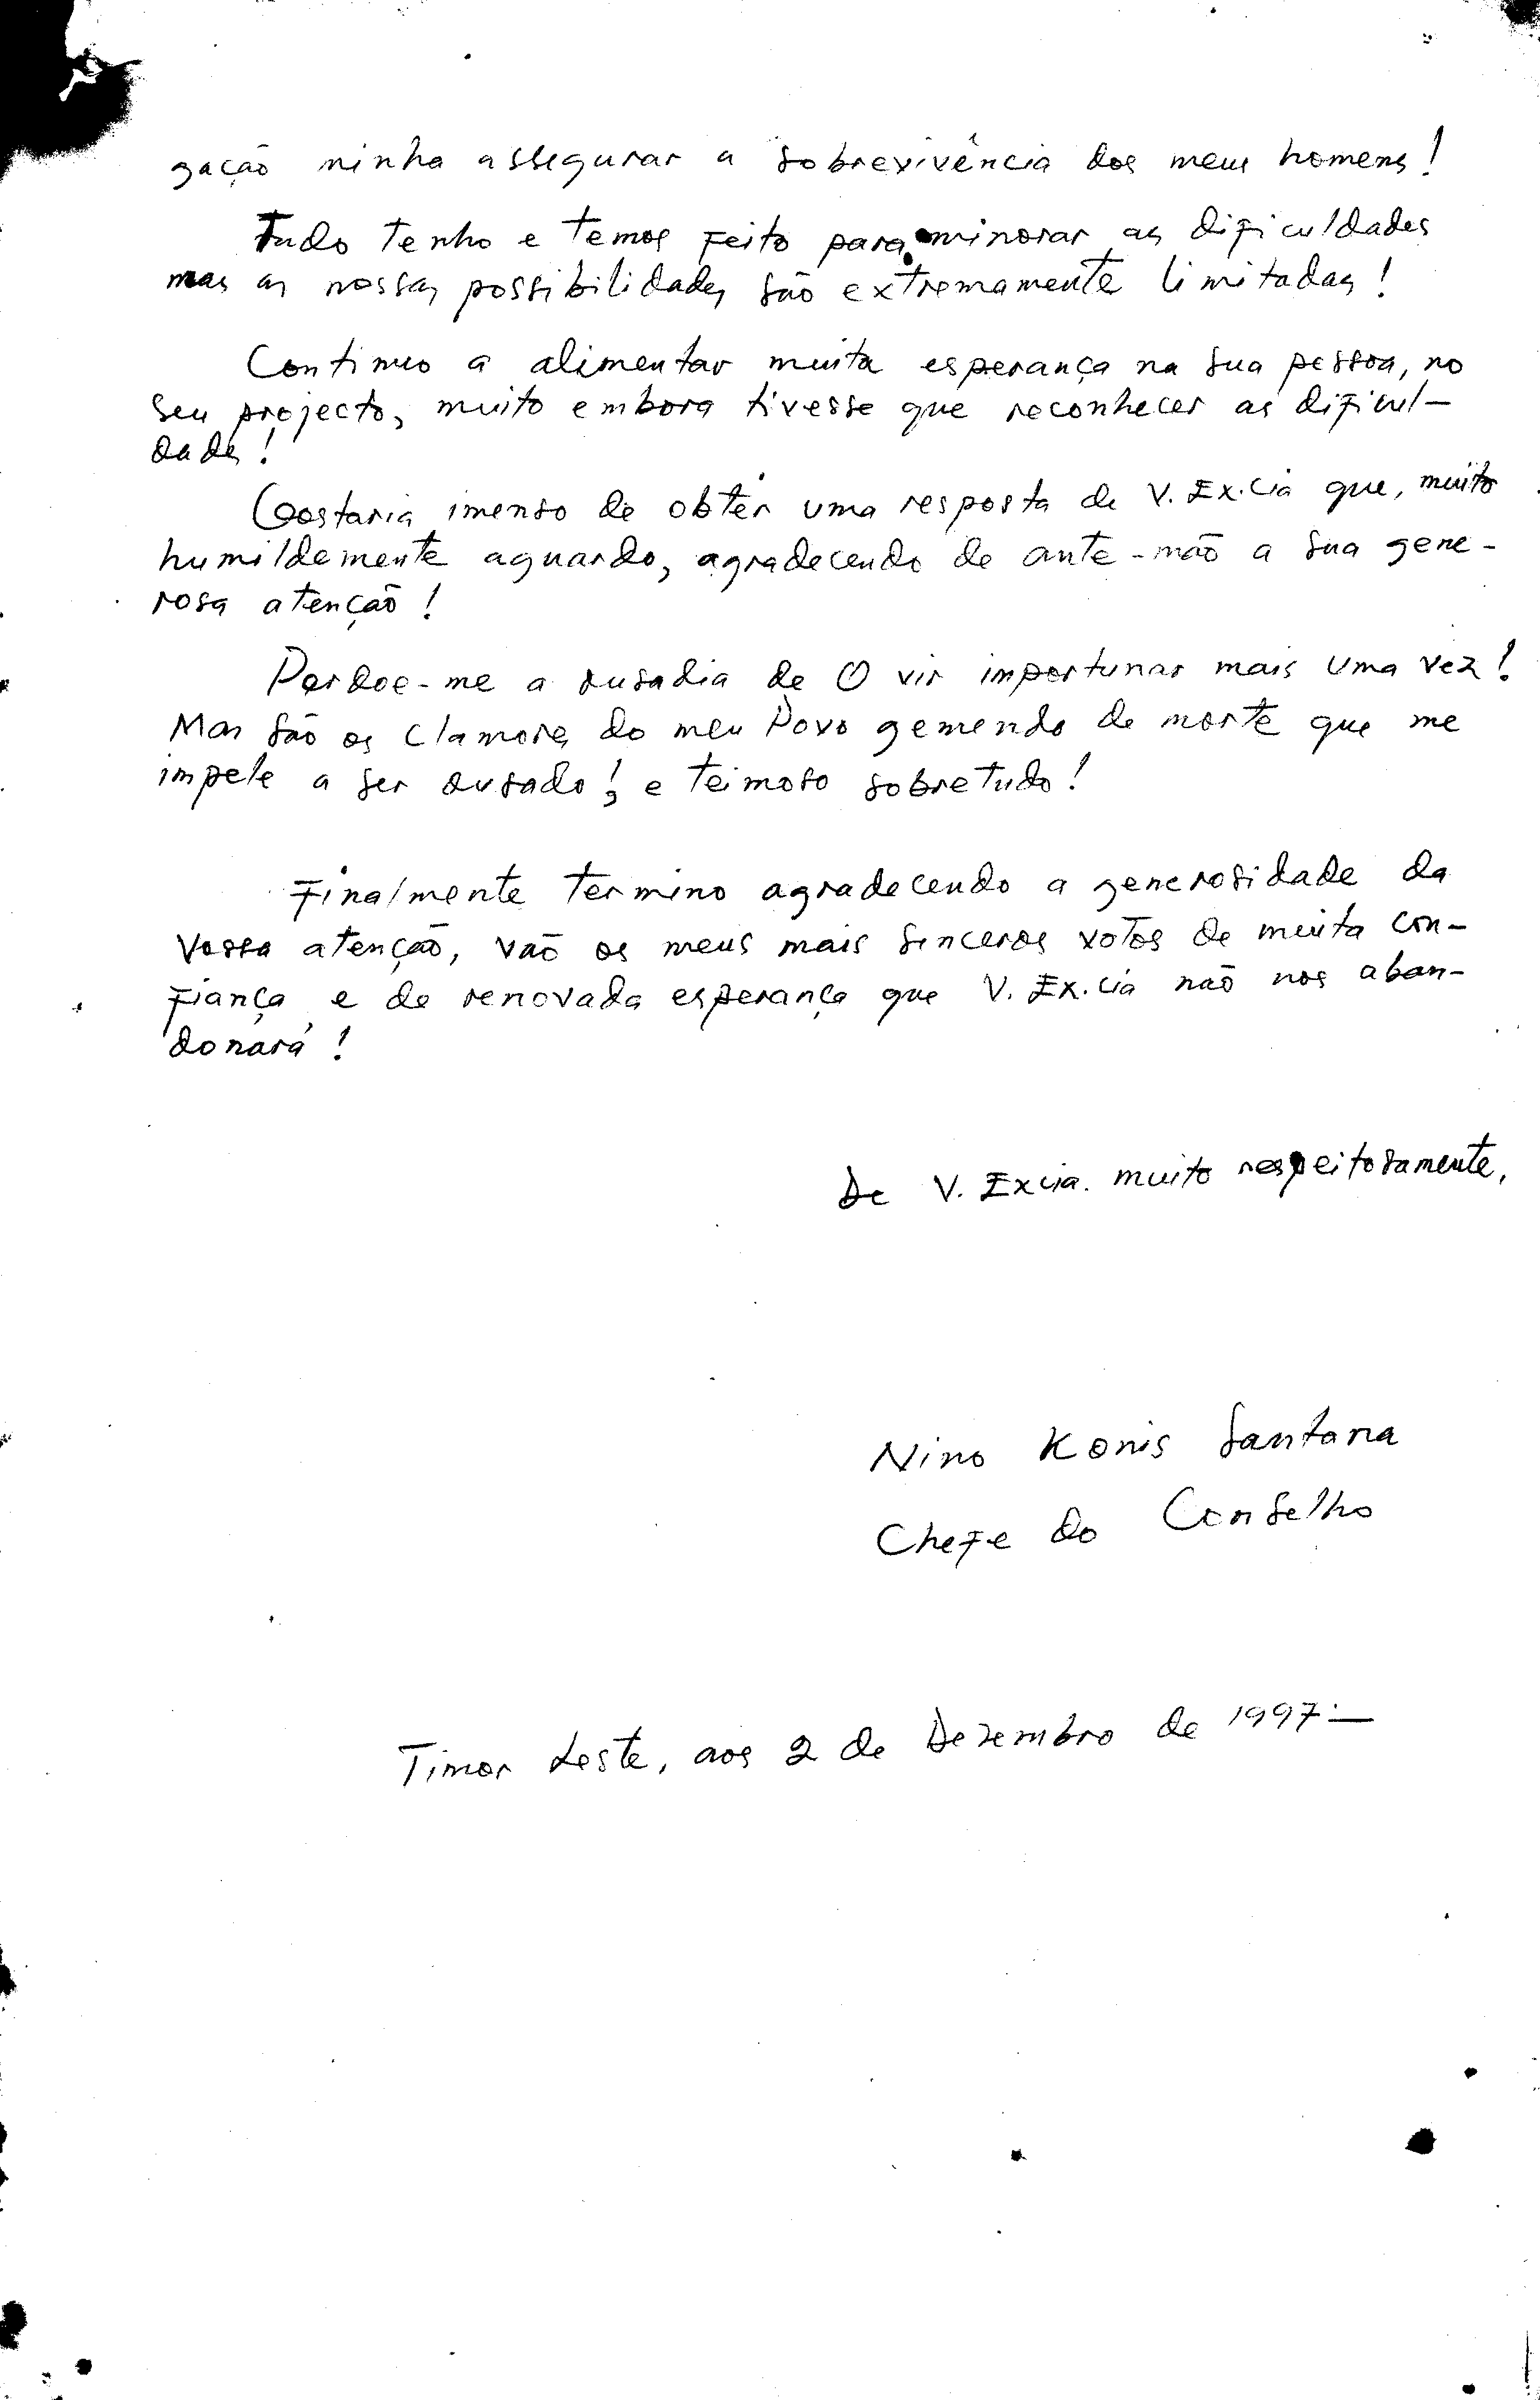 gação minha assegurar a sobrevivência dos meus homens!
Tudo tenho e temos feito para minorar as dificuldades
mas as nossas possibilidades são extremamente limitadas!
Continuo a alimentar muita esperança na sua pessoa, no
seu projecto, muito embora tivesse que reconhecer as dificul-
dades!
Gostaria imenso de obter uma resposta de V. Ex.cia que, muito
humildemente aguardo, agradecendo de ante-mão a sua gene-
rosa atenção!
Perdoe-me a ousadia de O vir importunar mais uma vez!
Mas são os clamores do meu Povo gemendo de morte que me
impele a ser ousado! e teimoso sobretudo!
Finalmente termino agradecendo a generosidade da
Vossa atenção, vão os meus mais sinceros votos de muita con-
fiança e de renovada esperança que V. Ex.cia não nos aban-
donará!
De V. Excia. muito respeitosamente,
Nino Konis Santana
Chefe do Conselho
Timor Leste, aos 2 de Dezembro de 1997.—